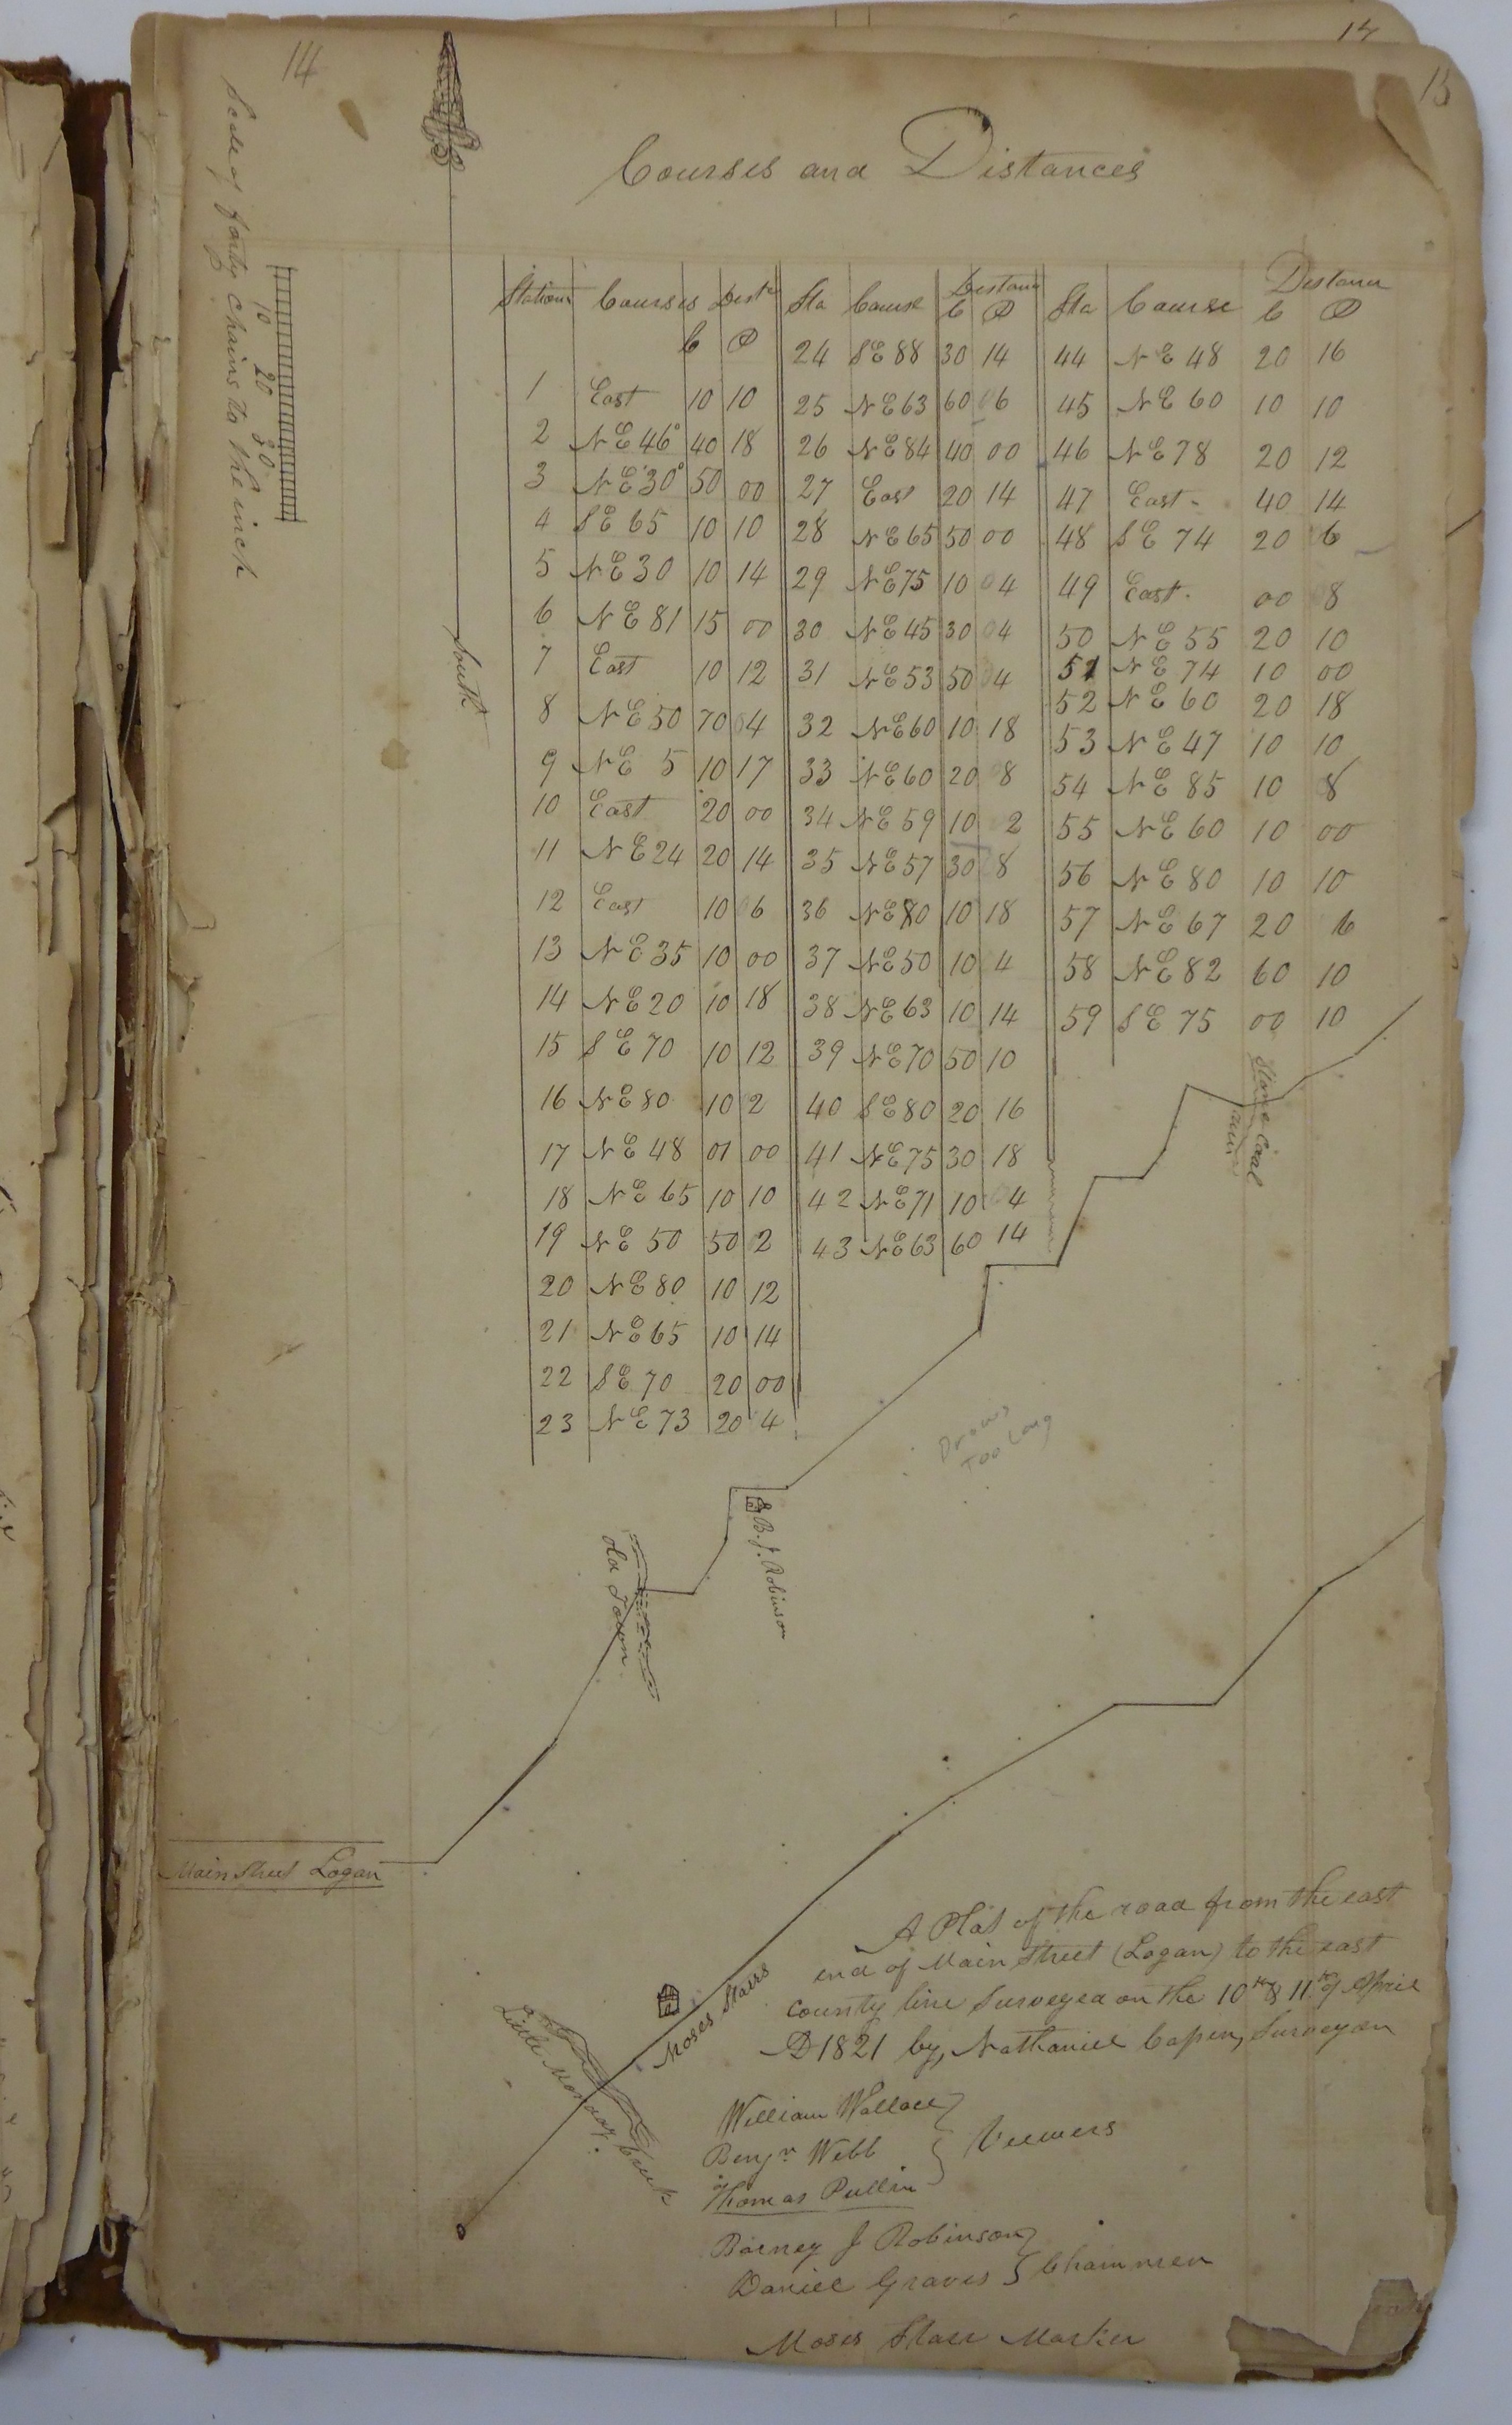 14
15
17
Courses and Distances
Scale of forty Chains to the inch
10 20 30
South
Stations Courses Dist
C P
1 East 10 10
2 NE 46° 40 18
3 NE 30° 50 00
4 SE 65 10 10
5 NE 30 10 14
6 NE 81 15 00
7 East 10 12
8 NE 50 70 04
9 NE 5 10 17
10 East 20 00
11 NE 24 20 14
12 East 10 06
13 NE 35 10 00
14 NE 20 10 18
15 SE 70 10 12
16 NE 80 10 2
17 NE 48 01 00
18 NE 65 10 10
19 NE 50 50 2
20 NE 80 10 12
21 NE 65 10 14
22 SE 70 20 00
23 NE 73 20 4
Sta Course Distance
C P
24 SE 88 30 14
25 NE 63 60 06
26 NE 84 40 00
27 East 20 14
28 NE 65 50 00
29 NE 75 10 04
30 NE 45 30 04
31 NE 53 50 04
32 NE 60 10 18
33 NE 60 20 08
34 NE 59 10 2
35 NE 57 30 8
36 NE 80 10 18
37 NE 50 10 4
38 NE 63 10 14
39 NE 70 50 10
40 SE 80 20 16
41 NE 75 30 18
42 NE 71 10 04
43 NE 63 60 14
Sta Course Distance
C P
44 NE 48 20 16
45 NE 60 10 10
46 NE 78 20 12
47 East 40 14
48 SE 74 20 6
49 East 00 8
50 NE 55 20 10
51 NE 74 10 00
52 NE 60 20 18
53 NE 47 10 10
54 NE 85 10 8
55 NE 60 10 00
56 NE 80 10 10
57 NE 67 20 6
58 NE 82 60 10
59 SE 75 00 10
Stone Coal
run
Draws
Too Long
B. J. Robinson
Old Town
Main Street Logan
Moses Starrs
Little Monday Creek
A Plat of the road from the east
end of Main Street (Logan) to the east
county line Surveyed on the 10th & 11th of April
AD 1821 by, Nathaniel Capen, Surveyor
William Wallace
Benjn Webb
Thomas Pullin
Viewers
Barney J Robinson
Daniel Graves
Chainmen
Moses Starr Marker